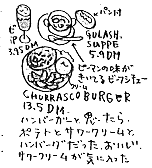 ビール
3.95DM
パン付
GULASH.
SUPPE
5.9DM
ピーマンの味が
きいてるビーフシチュー
クリーム
CHURRASCO BURGER
13.5 DM.
ハンバーガーと思ったら、
ポテトとサワークリームと
ハンバーグだった。おいしい
サワークリームが気に入った